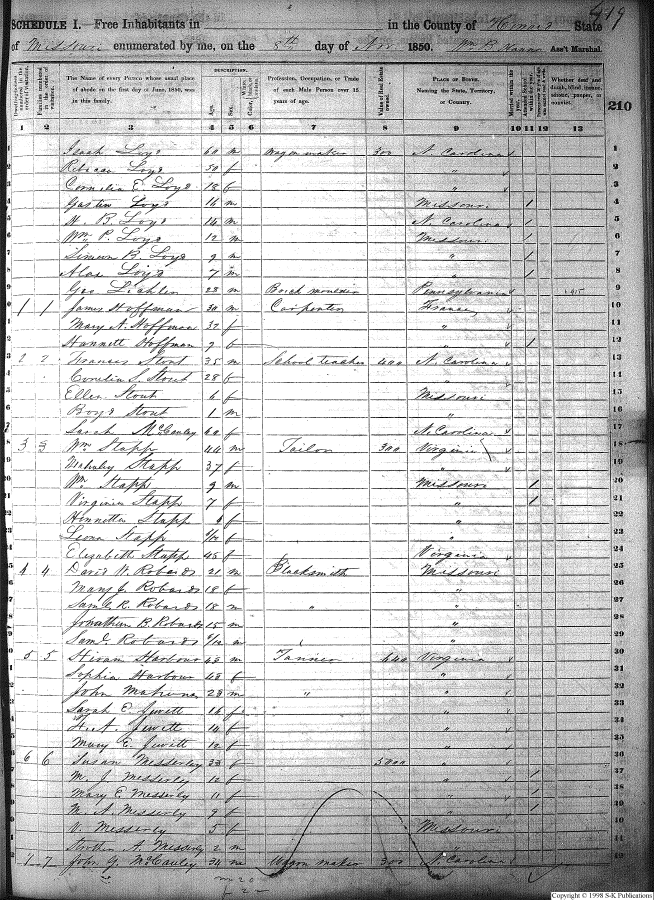 419
SCHEDULE I.—Free Inhabitants in in the County of Howard State
of Missouri enumerated by me, on the 8th day of Nov 1850. Wm B. Hanna Ass't Marshal.
Dwelling-houses numbered in the order of visitation.
Families numbered in the order of visitation.
The Name of every Person whose usual place of abode on the first day of June, 1850, was in this family.
DESCRIPTION.
Age. Sex. Color,
Profession, Occupation, or Trade of each Male Person over 15 years of age.
Value of Real Estate owned.
PLACE OF BIRTH. Naming the State, Territory, or Country.
Married within the year.
Whether deaf and dumb, blind, insane, idiotic, pauper, or convict.
210
1 2 3 4 5 6 7 8 9 10 11 12 13
Isaah Loyd 60 m Wagon maker 300 N. Carolina
Rebecca Loyd 50 f "
Cornelia E. Loyd 18 f "
Gaston Loyd 16 m Missouri 1
H. B. Loyd 14 m N. Carolina 1
Wm P. Loyd 12 m Missouri 1
Simeon B. Loyd 9 m " 1
Alax Loyd 7 m " 1
Geo 23 m Pennsylvania
1 1 James Hoffman 30 m Carpenter France
Mary A. Hoffman 37 f "
Hannett Hoffman 9 f " 1
2 2 Frances Stout 35 m School teacher 400 N. Carolina
Corelia S. Stout 28 f "
Ellen Stout 6 f Missouri
Boyd Stout 1 m "
Sarah McCauley 60 f N. Carolina
3 3 Wm Stapp 44 m Tailor 300 Virginia
Mahaley Stapp 37 f "
Wm Stapp 9 m Missouri 1
Virginia Stapp 7 f " 1
Hennetta Stapp f "
Leona Stapp f "
Elizabeth Stapp 45 f Virginia
4 4 David W. Robards 21 m Blacksmith Missouri
Mary J. Robards 18 f "
Saml R. Robards 18 m " "
Jonathan B. Robards 15 m "
Saml Robards m "
5 5 Hiram Harbour 43 m Tanner 640 Virginia
Sophia Harbour 43 f "
John 23 m " "
Sarah E. Jewitt 16 f "
H. A. Jewitt 14 f "
Mary E. Jewitt 12 f "
6 6 Susan Messerley 33 f 5000 "
M. J. Messerley 12 f " 1
Mary E. Messerly 11 f " 1
M. A. Messerly 9 f " 1
V. Messerly 5 f Missouri
A. Messerly 2 m "
7 7 John G. McCauley 34 m Wagon maker 300 N. Carolina
m 20
f 22
Copyright © 1998 S-K Publications